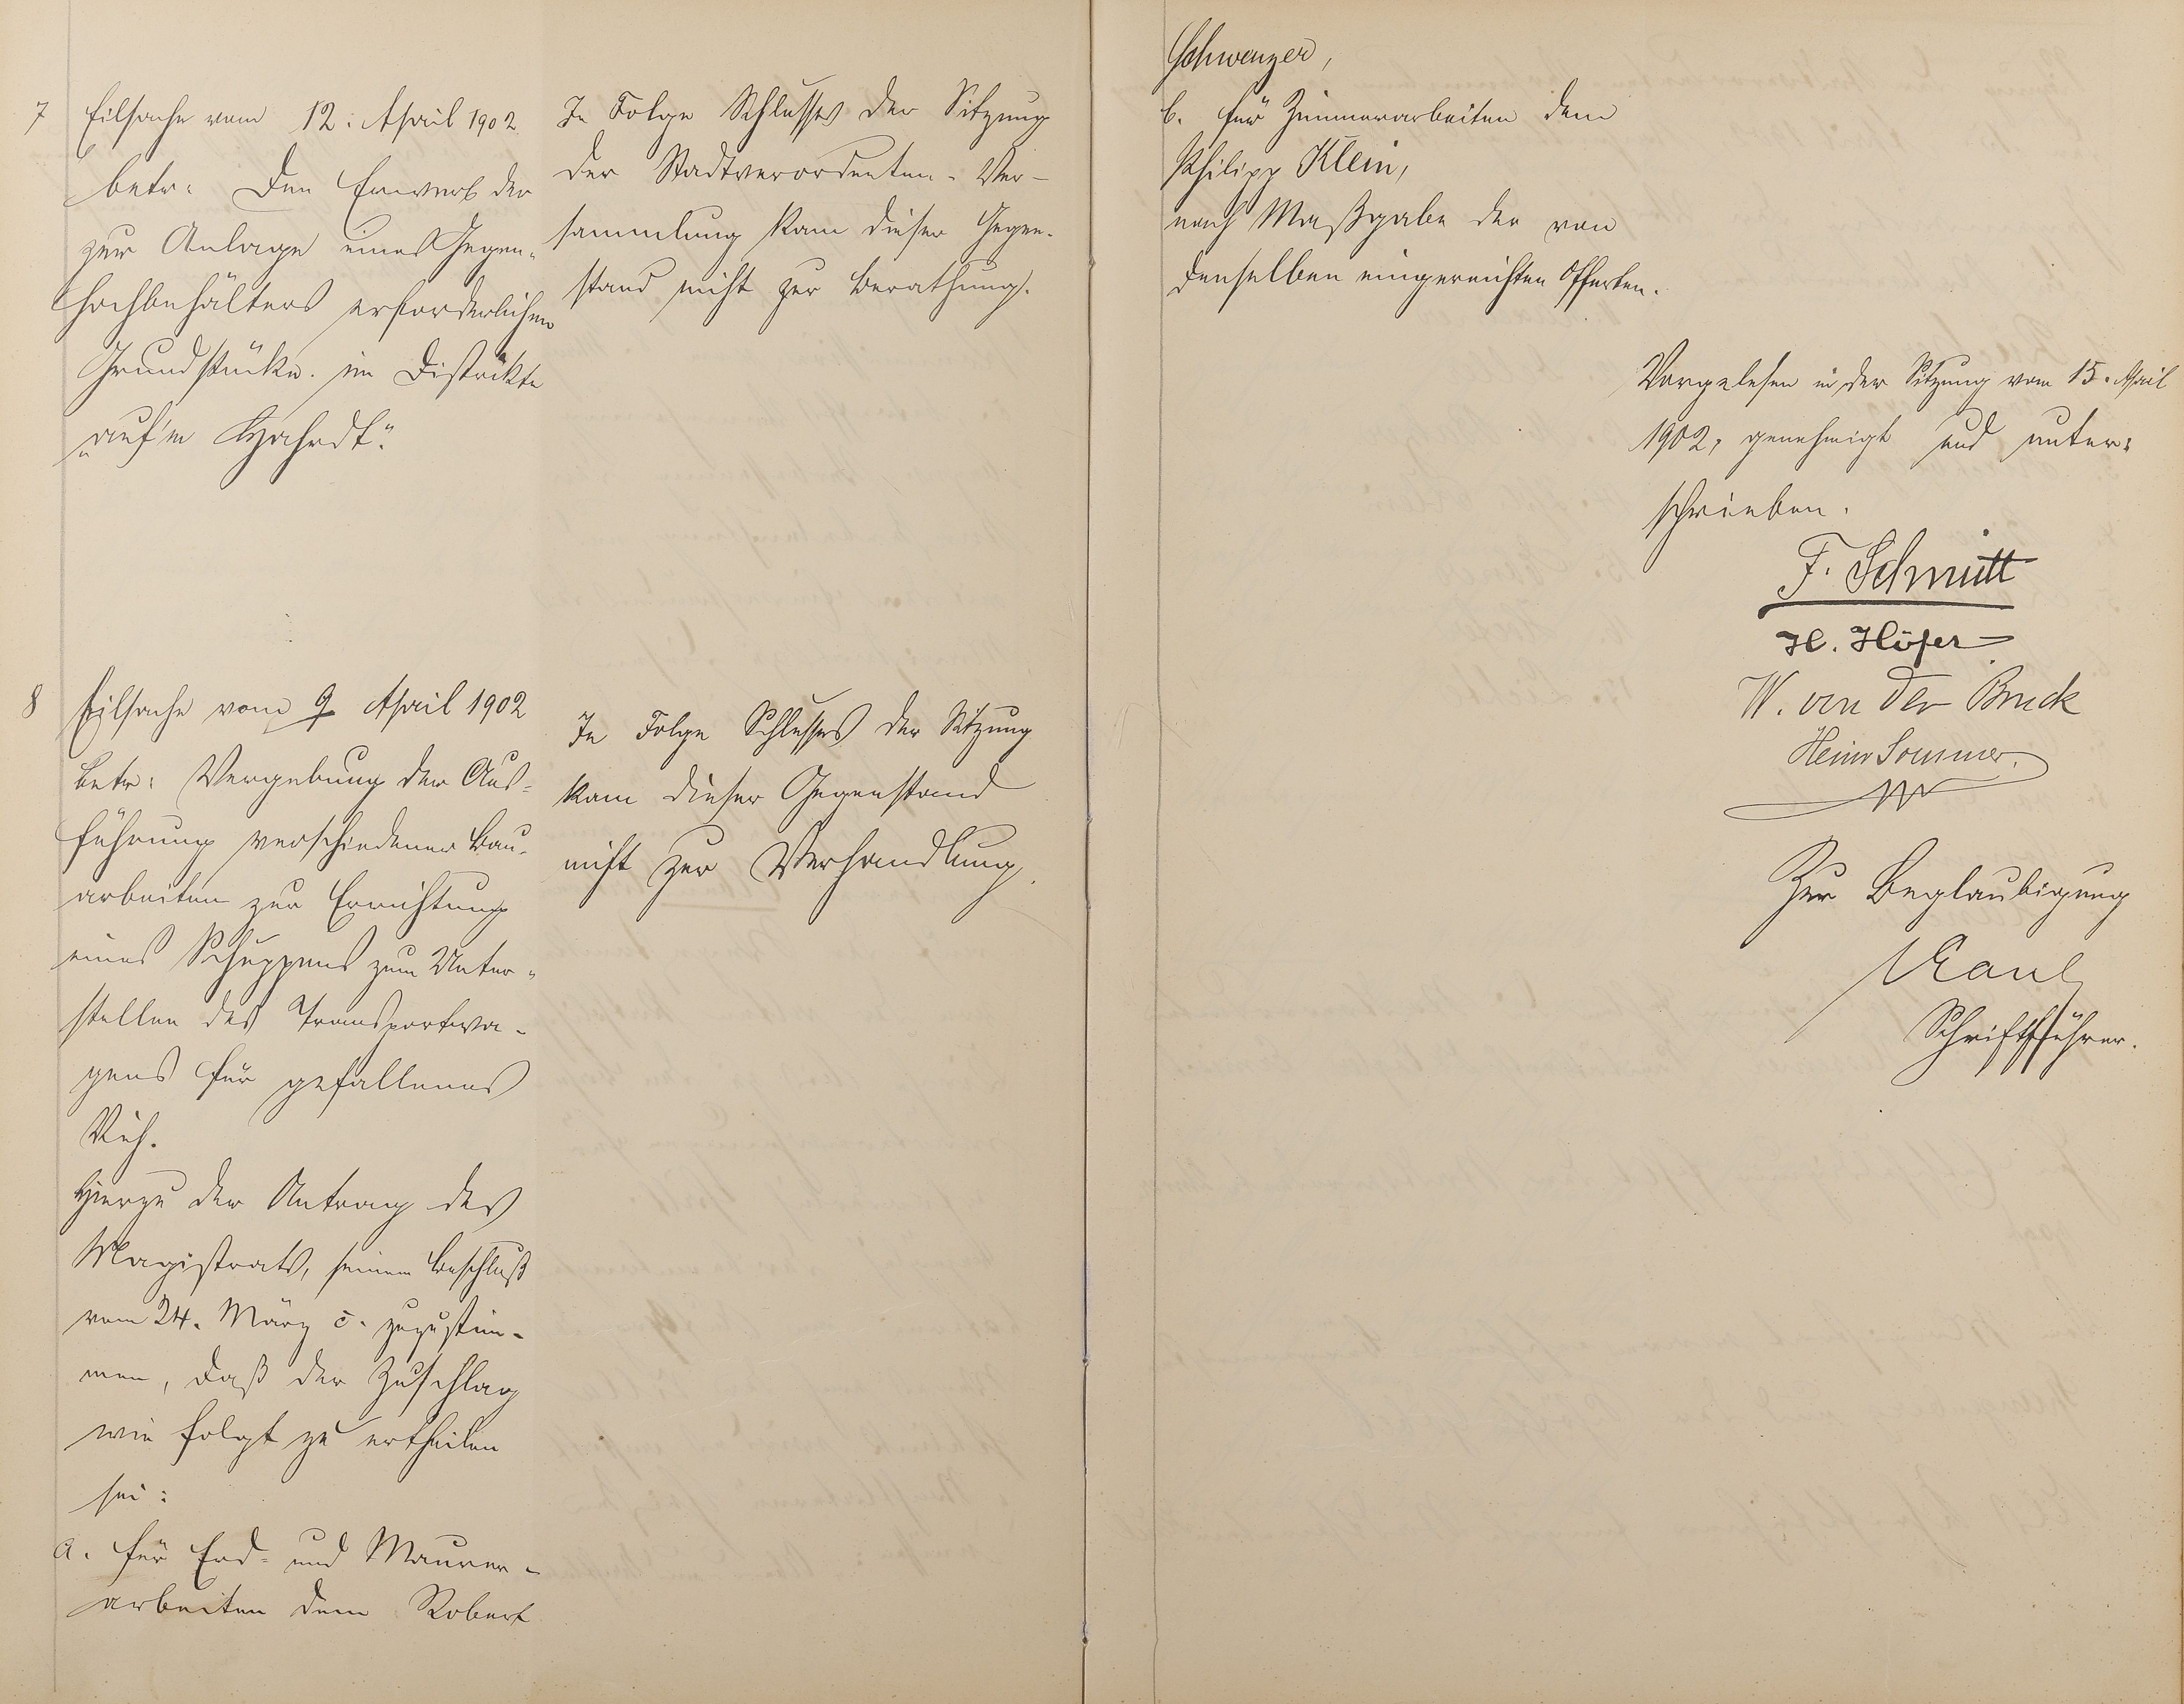 7 Eilsache vom 12. April 1902
betr: Den Erwerb der
zur Anlage eines Gegen-
hochbehälters erforderlichen
Grundstücke im Distrikte
„auf'm Hahrdt".
In Folge Schlusses der Sitzung
der Stadtverordneten-Ver-
sammlung kam dieser Gegen-
stand nicht zur Berathung.
8 Eilsache vom 9 April 1902
betr: Vergebung der Aus-
führung verschiedener Bau-
arbeiten zur Errichtung
eines Schuppens zum Unter-
stellen des Transportwa-
gens für gefallenes
Vieh.
Hierzu der Antrag des
Magistrats, seinem Beschluß
vom 24. März c. zuzustim-
men, daß der Zuschlag
wie folgt zu ertheilen
sei:
a. für Erd- und Maurer-
arbeiten dem Robert
In Folge Schlusses der Sitzung
kam dieser Gegenstand
nicht zur Verhandlung.
Schwenzer,
b. für Zimmerarbeiten dem
Philipp Klein,
nach Maßgabe der von
denselben eingereichten Offerten.
Vorgelesen in der Sitzung vom 15. April
1902, genehmigt und unter-
schrieben.
F. Schmitt
H. Höfer
W. von der Bruck
Heinr Sommer.
Zur Beglaubigung
Kaul
Schriftführer.